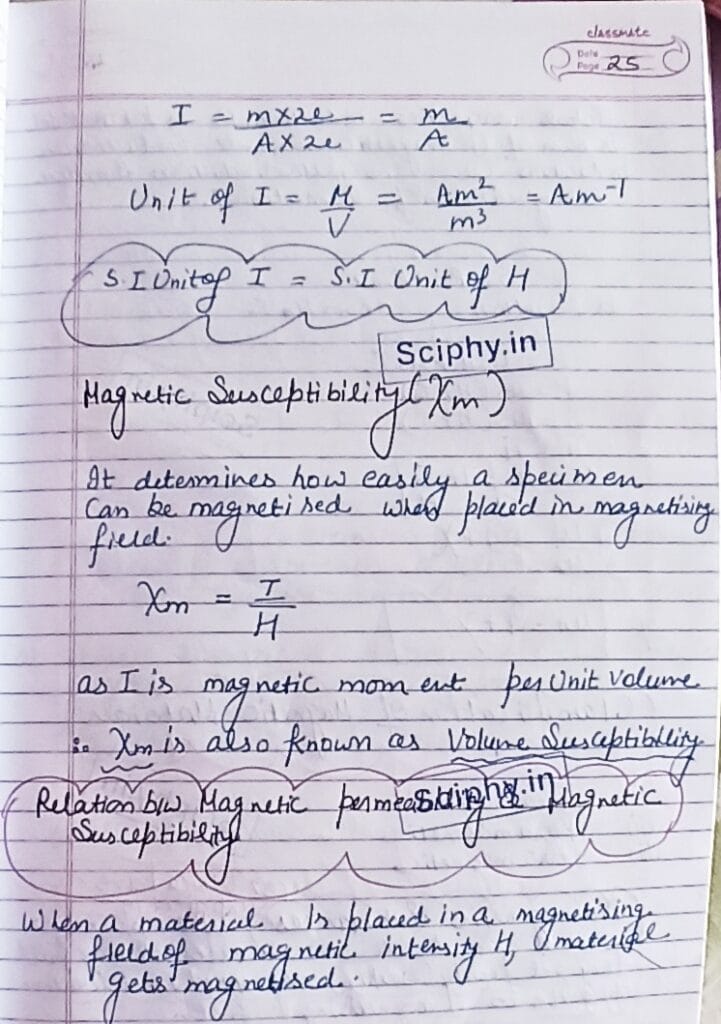 classmate
Date
Page 25
I = m×2l / A×2l = m / A
Unit of I = M / V = Am² / m³ = Am⁻¹
S.I Unit of I = S.I Unit of H
Sciphy.in
Magnetic Susceptibility (χm)
It determines how easily a specimen
Can be magnetised when placed in magnetising
field.
χm = I / H
as I is magnetic moment per Unit Volume
∴ χm is also known as Volume Susceptibility
Relation b/w Magnetic permeability & Magnetic
Sciphy.in
Susceptibility
When a material is placed in a magnetising
field of magnetic intensity H, material
gets magnetised.